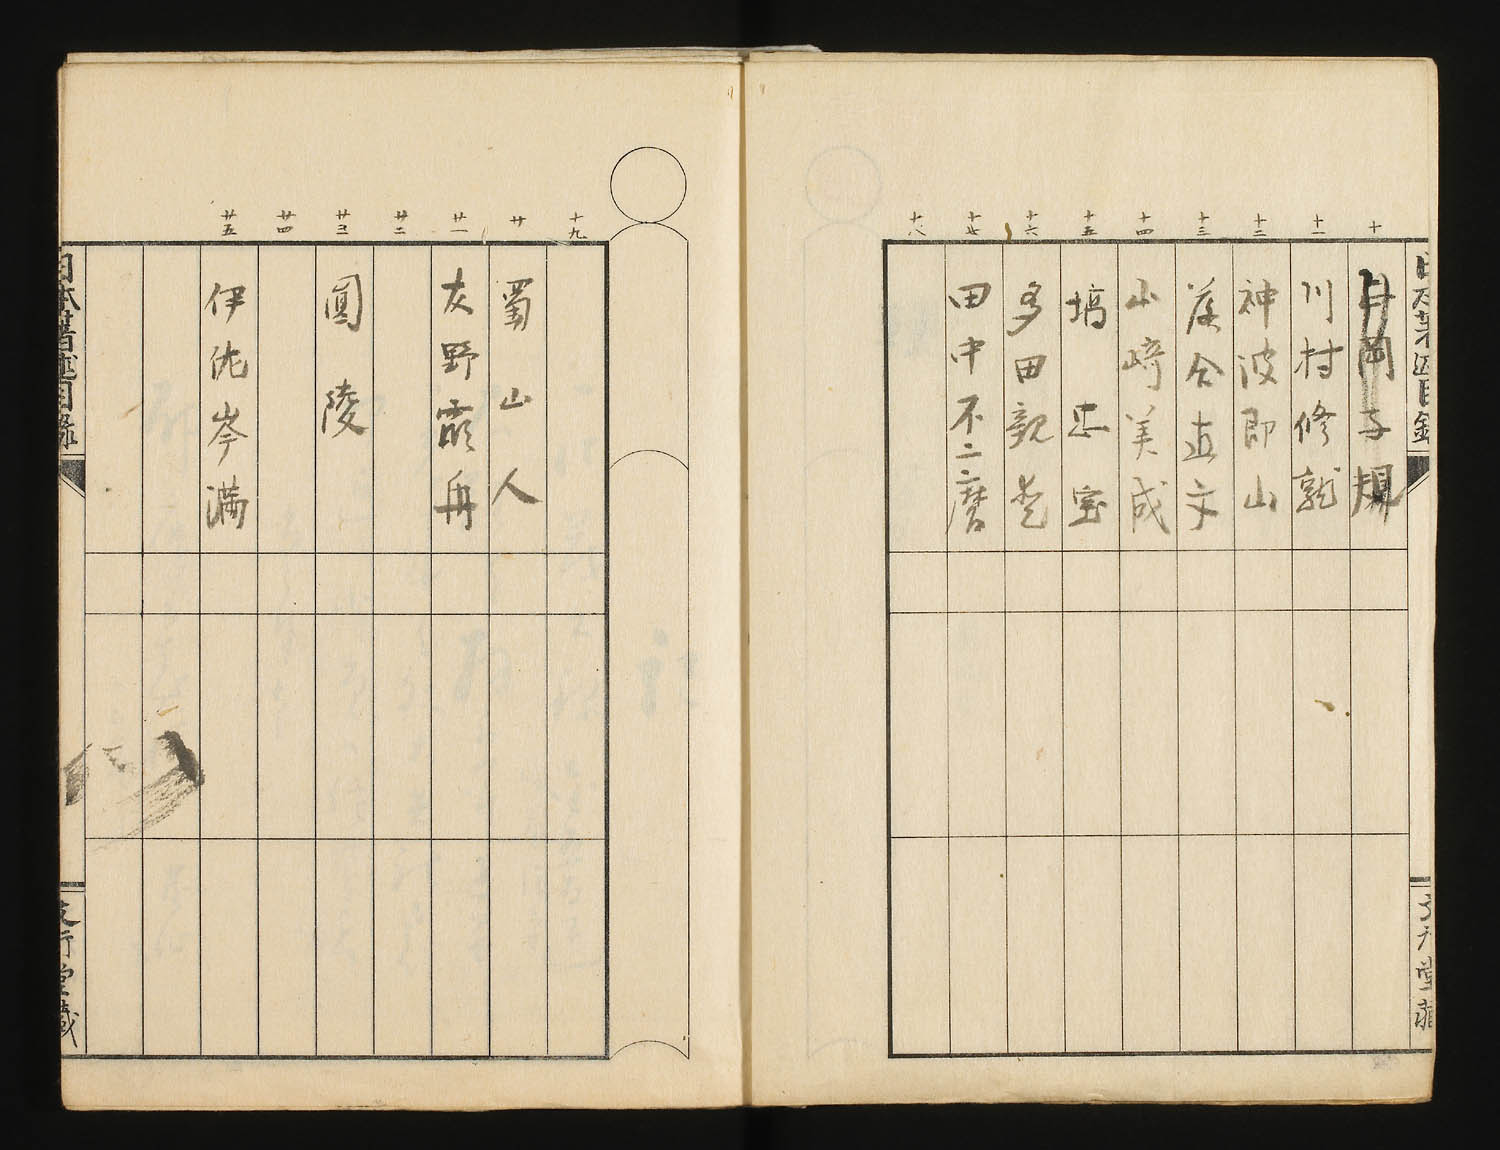 十
十一
十二
十三
十四
十五
十六
十七
十八
正岡子規
川村修就
神波即山
落合直文
山崎美成
塙忠宝
多田親愛
田中不二麿
十九
廿
廿一
廿二
廿三
廿四
廿五
蜀山人
灰野霞舟
圓陵
伊佐岑満
日本書述目録
文行堂蔵